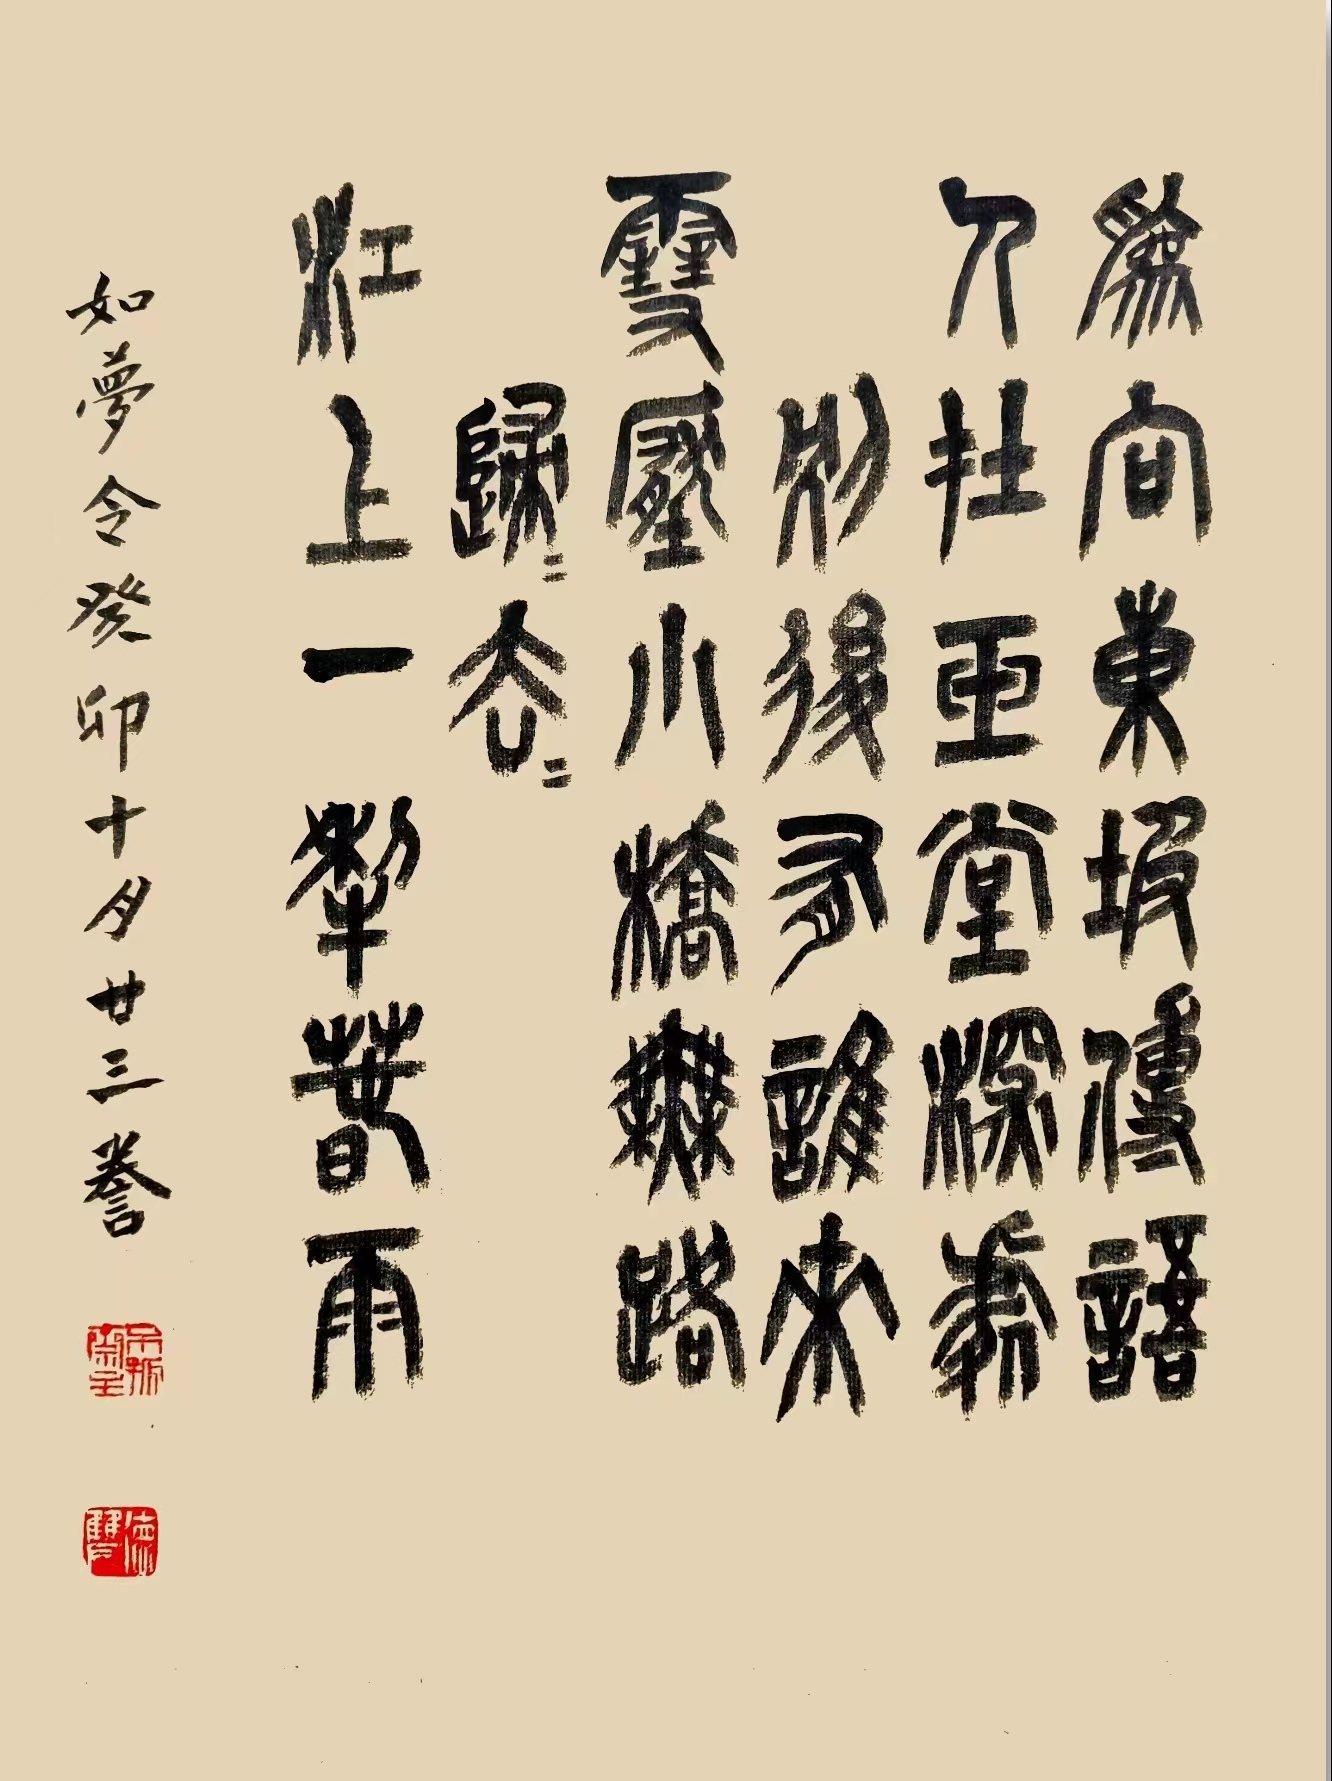 為向東坡傳語
人在玉堂深處
別後有誰來
雪壓小橋無路
歸〻去〻
江上一犁春雨
如夢令癸卯十月廿三誊